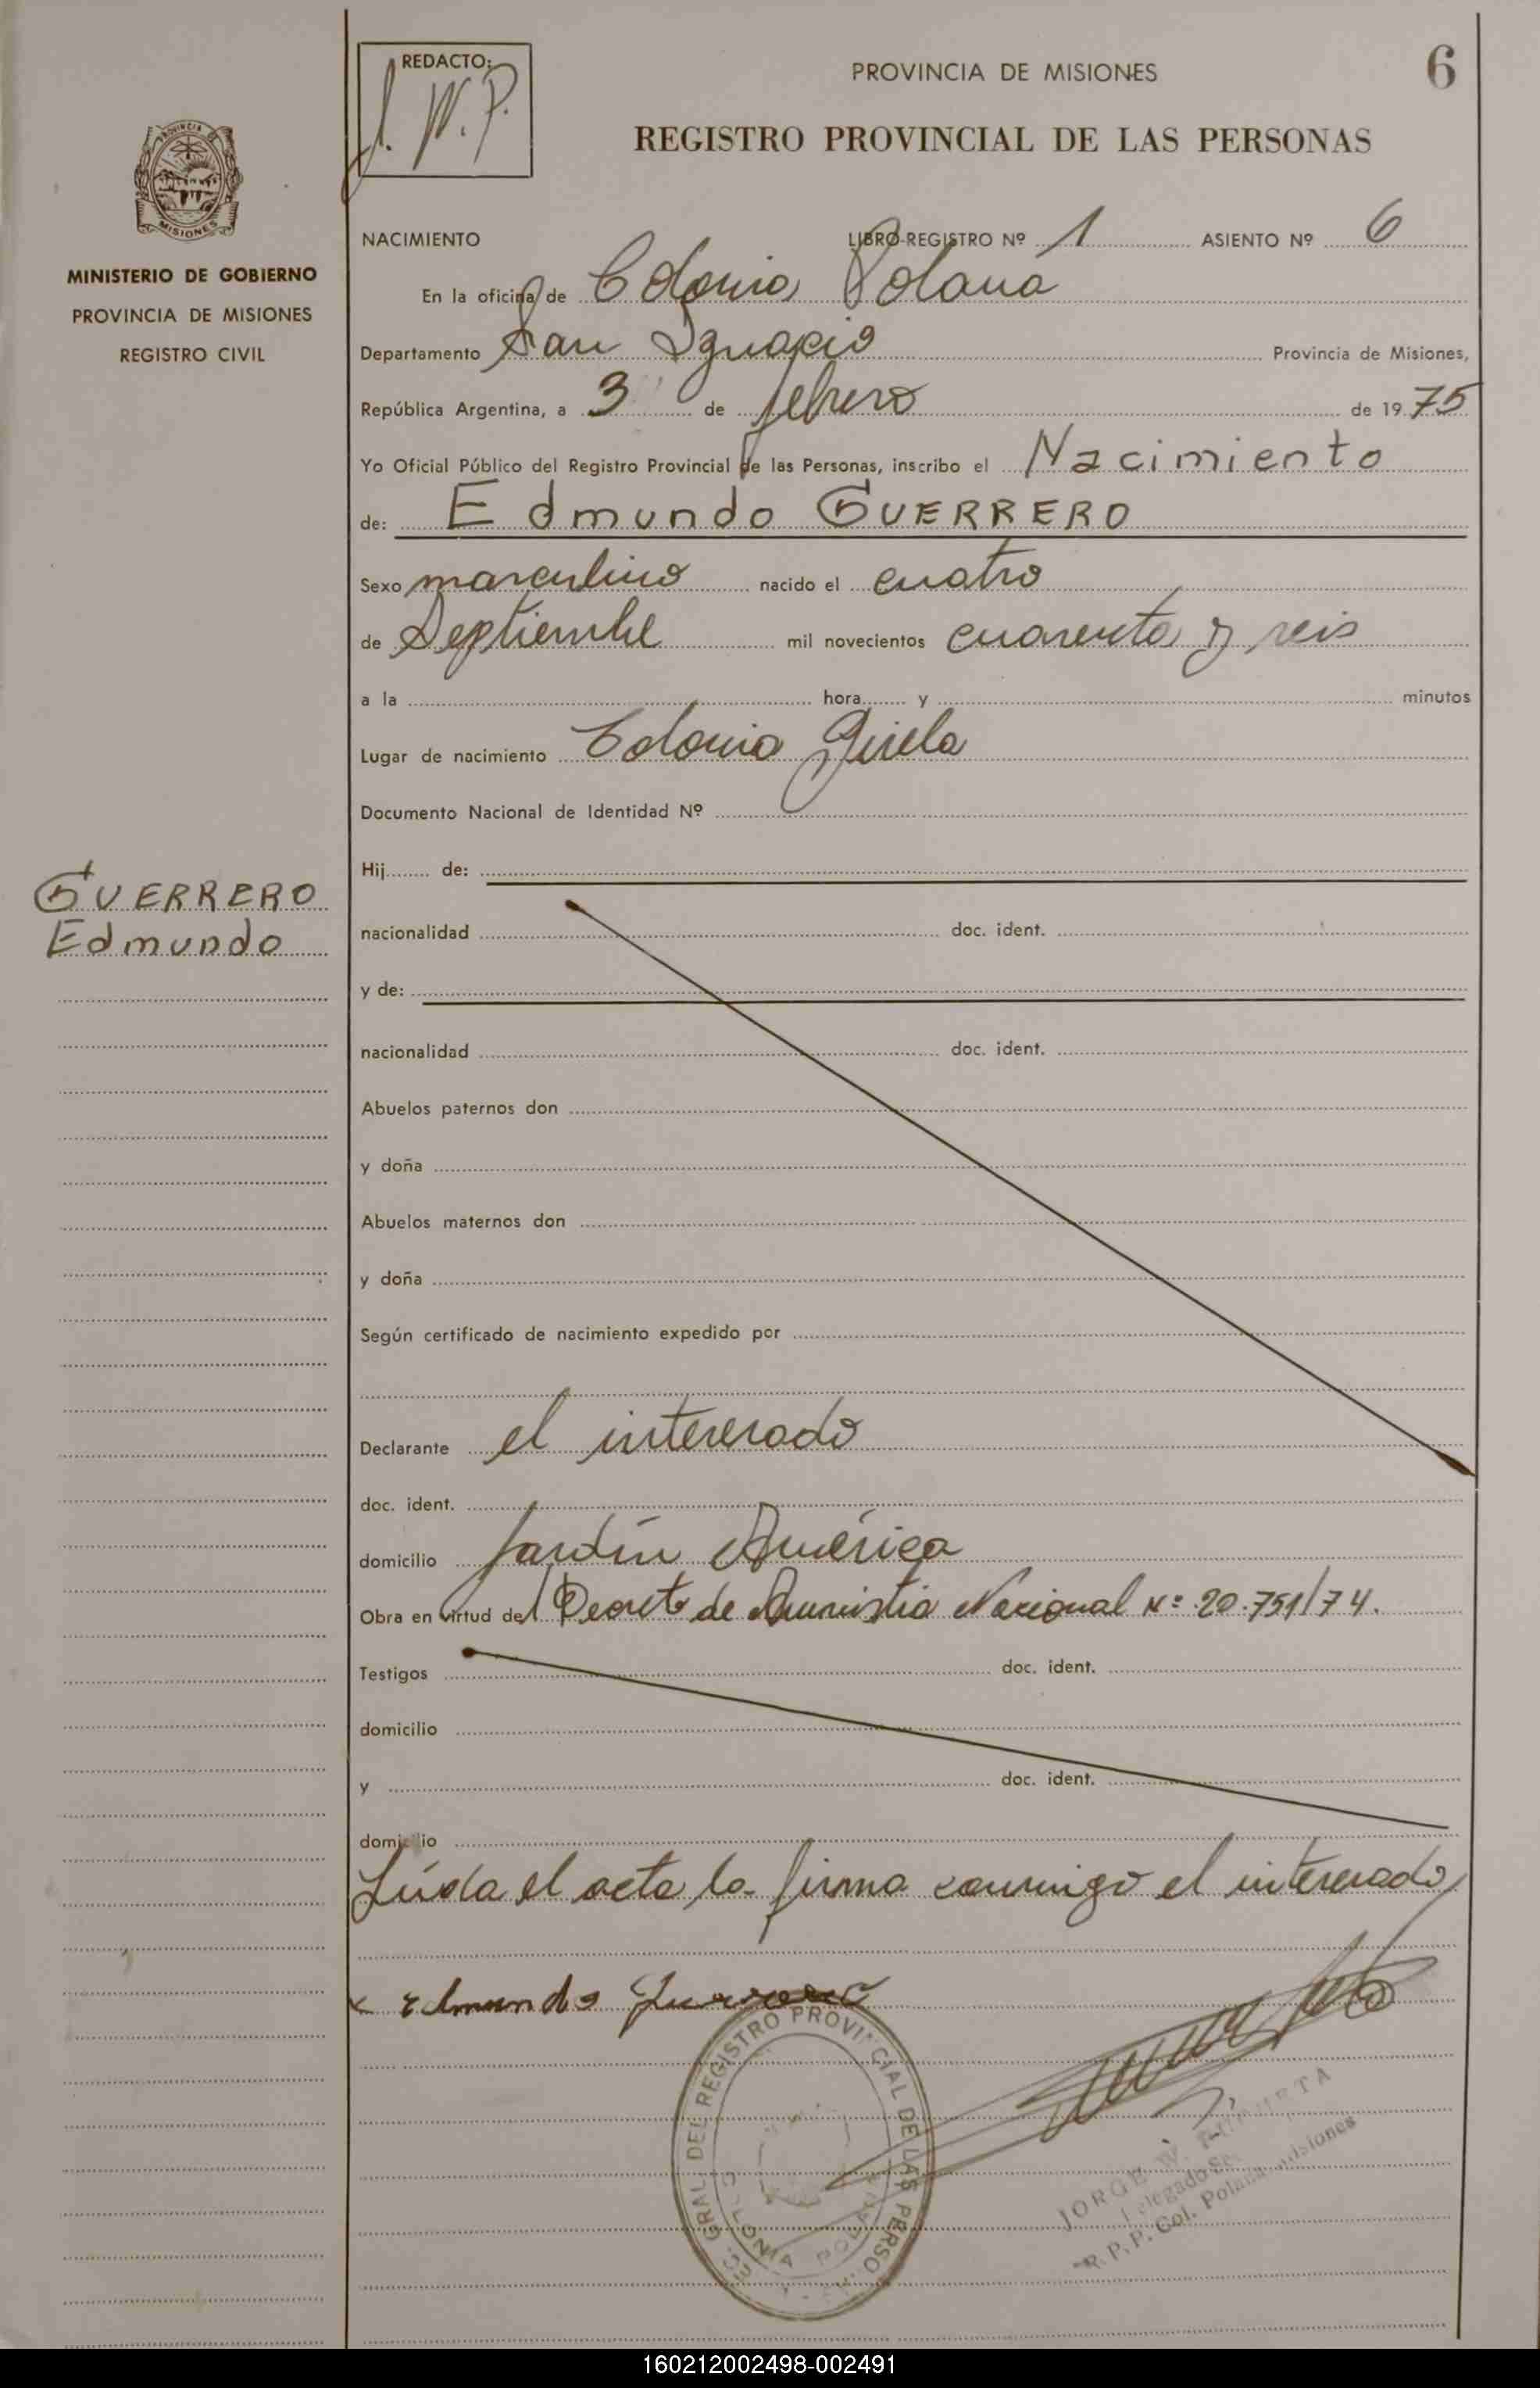 REDACTO:
J. W. P.
PROVINCIA DE MISIONES
6
REGISTRO PROVINCIAL DE LAS PERSONAS
PROVINCIA DE
MISIONES
MINISTERIO DE GOBIERNO
PROVINCIA DE MISIONES
REGISTRO CIVIL
NACIMIENTO LIBRO-REGISTRO Nº 1 ASIENTO Nº 6
En la oficina de Colonia Polana
Departamento San Ignacio Provincia de Misiones,
República Argentina, a 3 de febrero de 1975
Yo Oficial Público del Registro Provincial de las Personas, inscribo el Nacimiento
de: Edmundo GUERRERO
Sexo masculino nacido el cuatro
de Septiembre mil novecientos cuarenta y seis
a la hora y minutos
Lugar de nacimiento Colonia Gisela
Documento Nacional de Identidad Nº
Hij de:
GUERRERO
Edmundo
nacionalidad doc. ident.
y de:
nacionalidad doc. ident.
Abuelos paternos don
y doña
Abuelos maternos don
y doña
Según certificado de nacimiento expedido por
Declarante el interesado
doc. ident.
domicilio Jardín América
Obra en virtud del Decreto de Amnistia Nacional Nº 20.751/74.
Testigos doc. ident.
domicilio
y doc. ident.
domicilio
Leída el acta la firma conmigo el interesado
x Edmundo Guerrero
GRAL. DEL REGISTRO PROVINCIAL DE LAS PERSO
COLONIA POLANA
JORGE W.
Delegado
R. P. P. Col. Polana Misiones
160212002498-002491